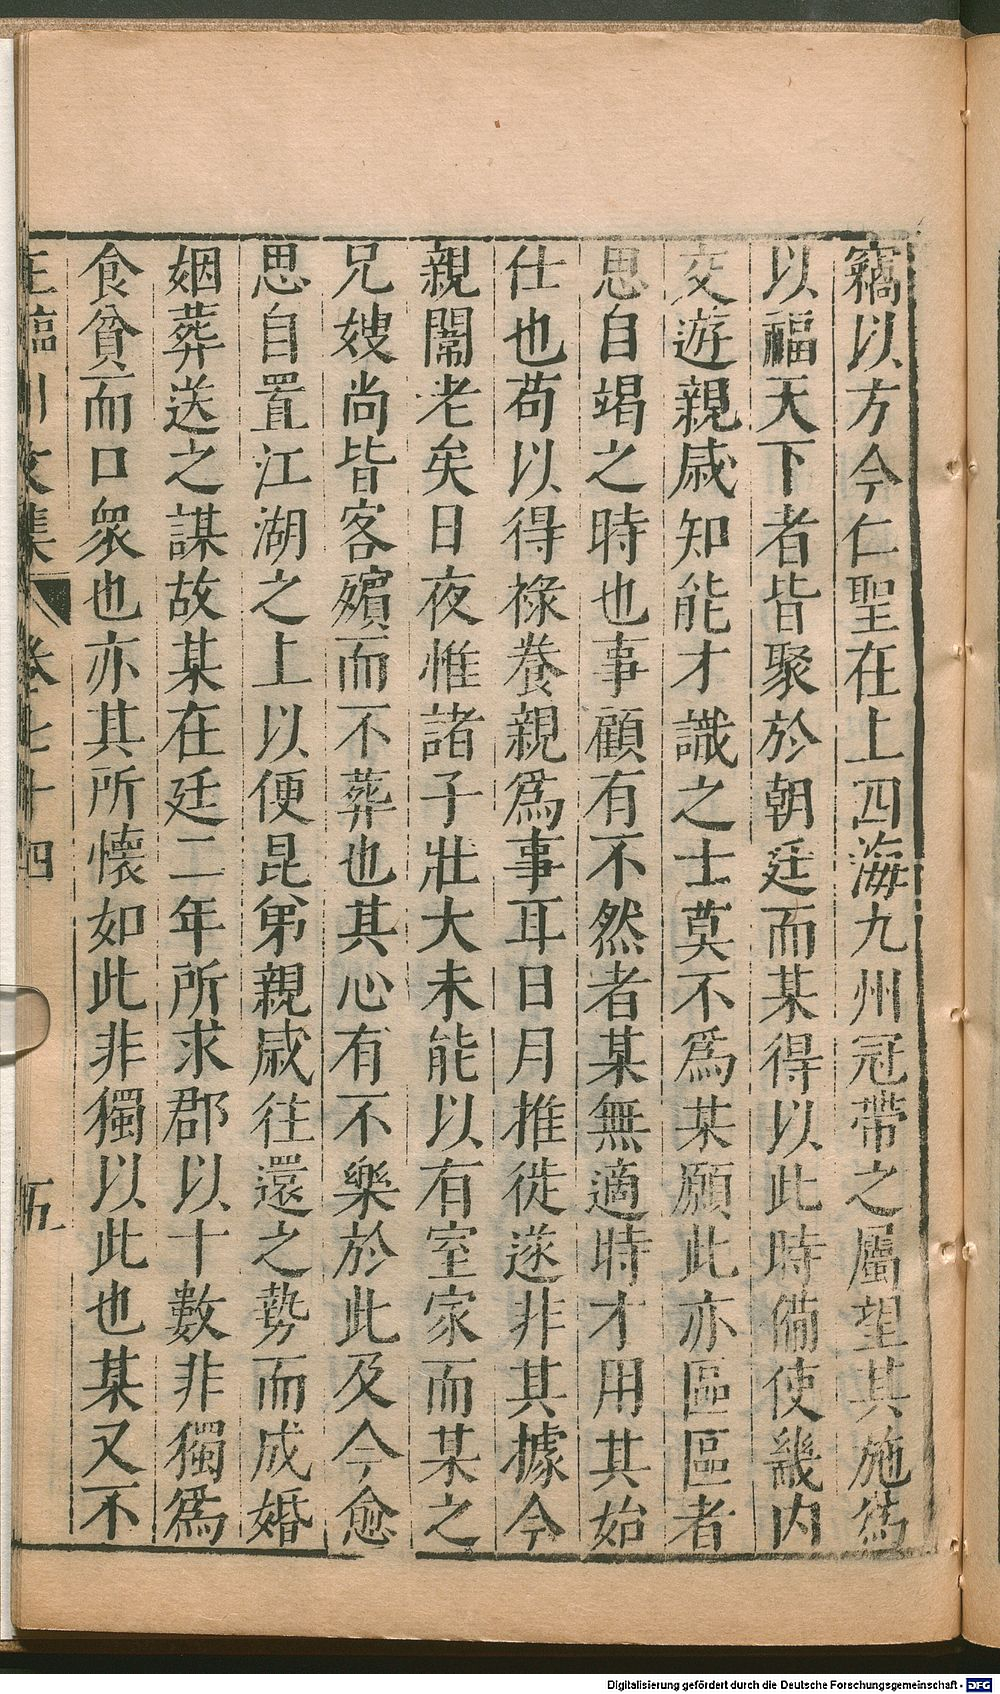 竊以方今仁聖在上四海九州冠帶之屬望其施爲
以福天下者皆聚於朝廷而某得以此時備使畿内
交遊親戚知能才識之士莫不爲某願此亦區區者
思自竭之時也事顧有不然者某無適時才用其始
仕也苟以得祿養親爲事耳日月推徙遂非其據今
親闈老矣日夜惟諸子壯大未能以有室家而某之
兄嫂尚皆客殯而不葬也其心有不樂於此及今愈
思自置江湖之上以便昆弟親戚往還之勢而成婚
姻葬送之謀故某在廷二年所求郡以十數非獨爲
食貧而口衆也亦其所懷如此非獨以此也某又不
王臨川文集 卷七十四 五
Digitalisierung gefördert durch die Deutsche Forschungsgemeinschaft - DFG